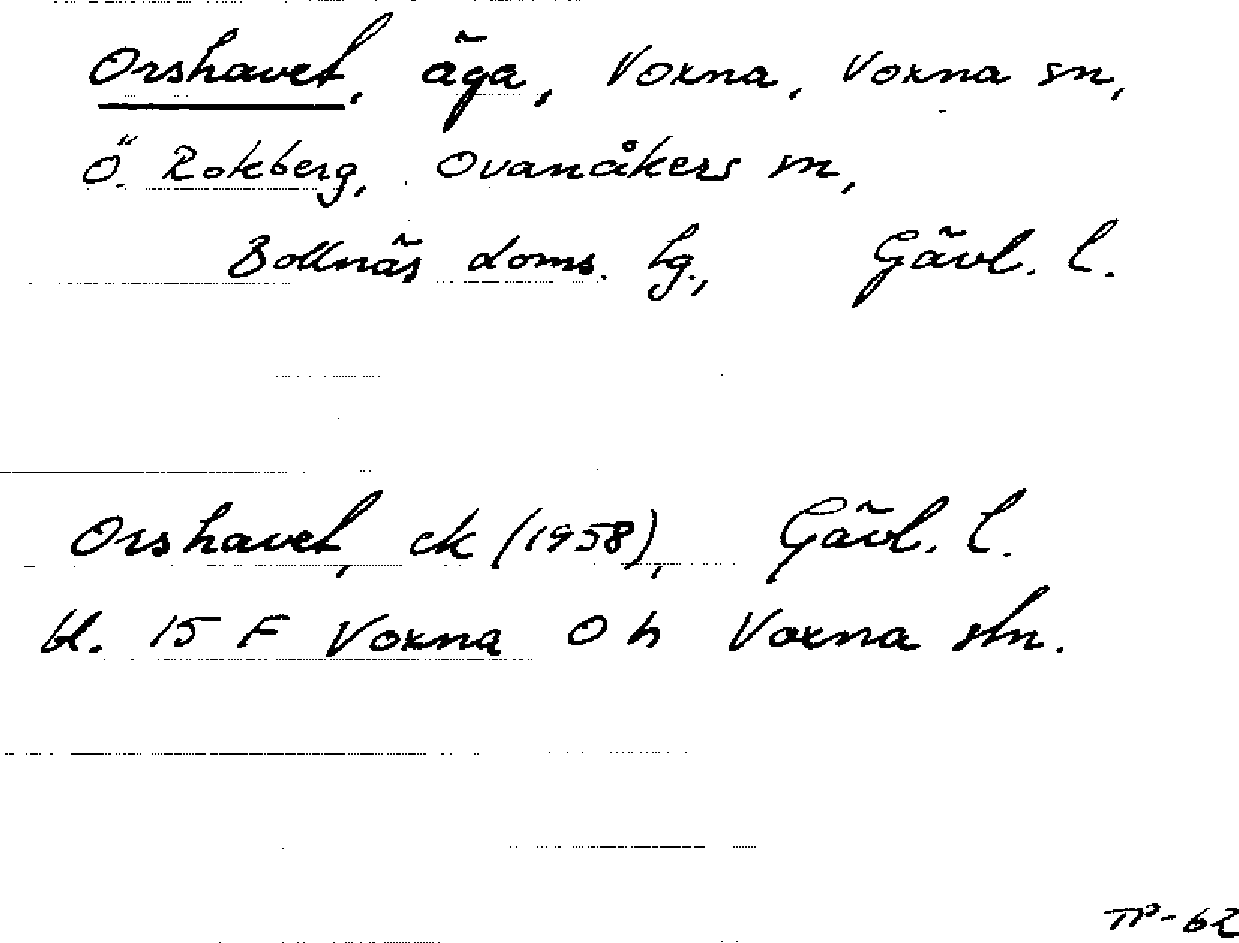 Orshavet, äga, Voxna, Voxna sn,
Ö. Rokberg, Ovanåkers sn,
Bollnäs doms. hg., Gävl. l.
Orshavet, ek (1958), Gävl. l.
bl. 15 F Voxna 0 h Voxna sn.
TP-62